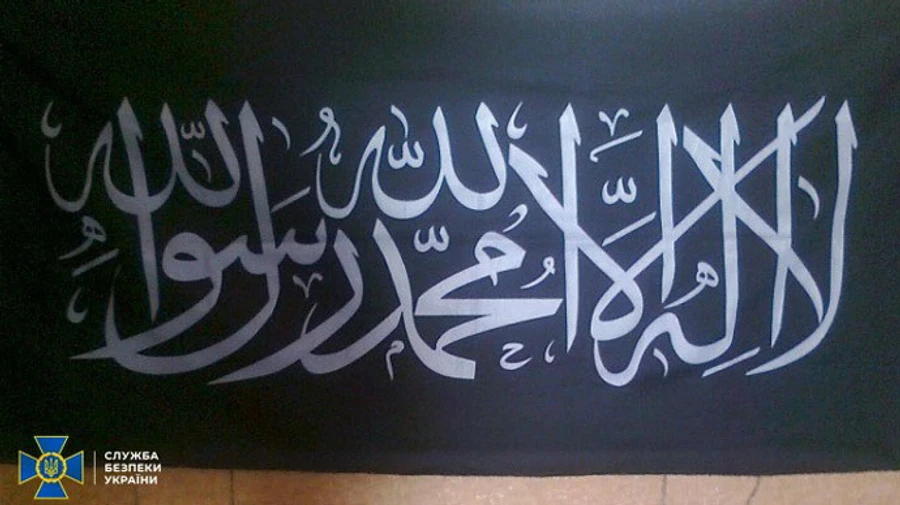 لا إله إلا الله محمد رسول الله
СЛУЖБА
БЕЗПЕКИ
УКРАЇНИ